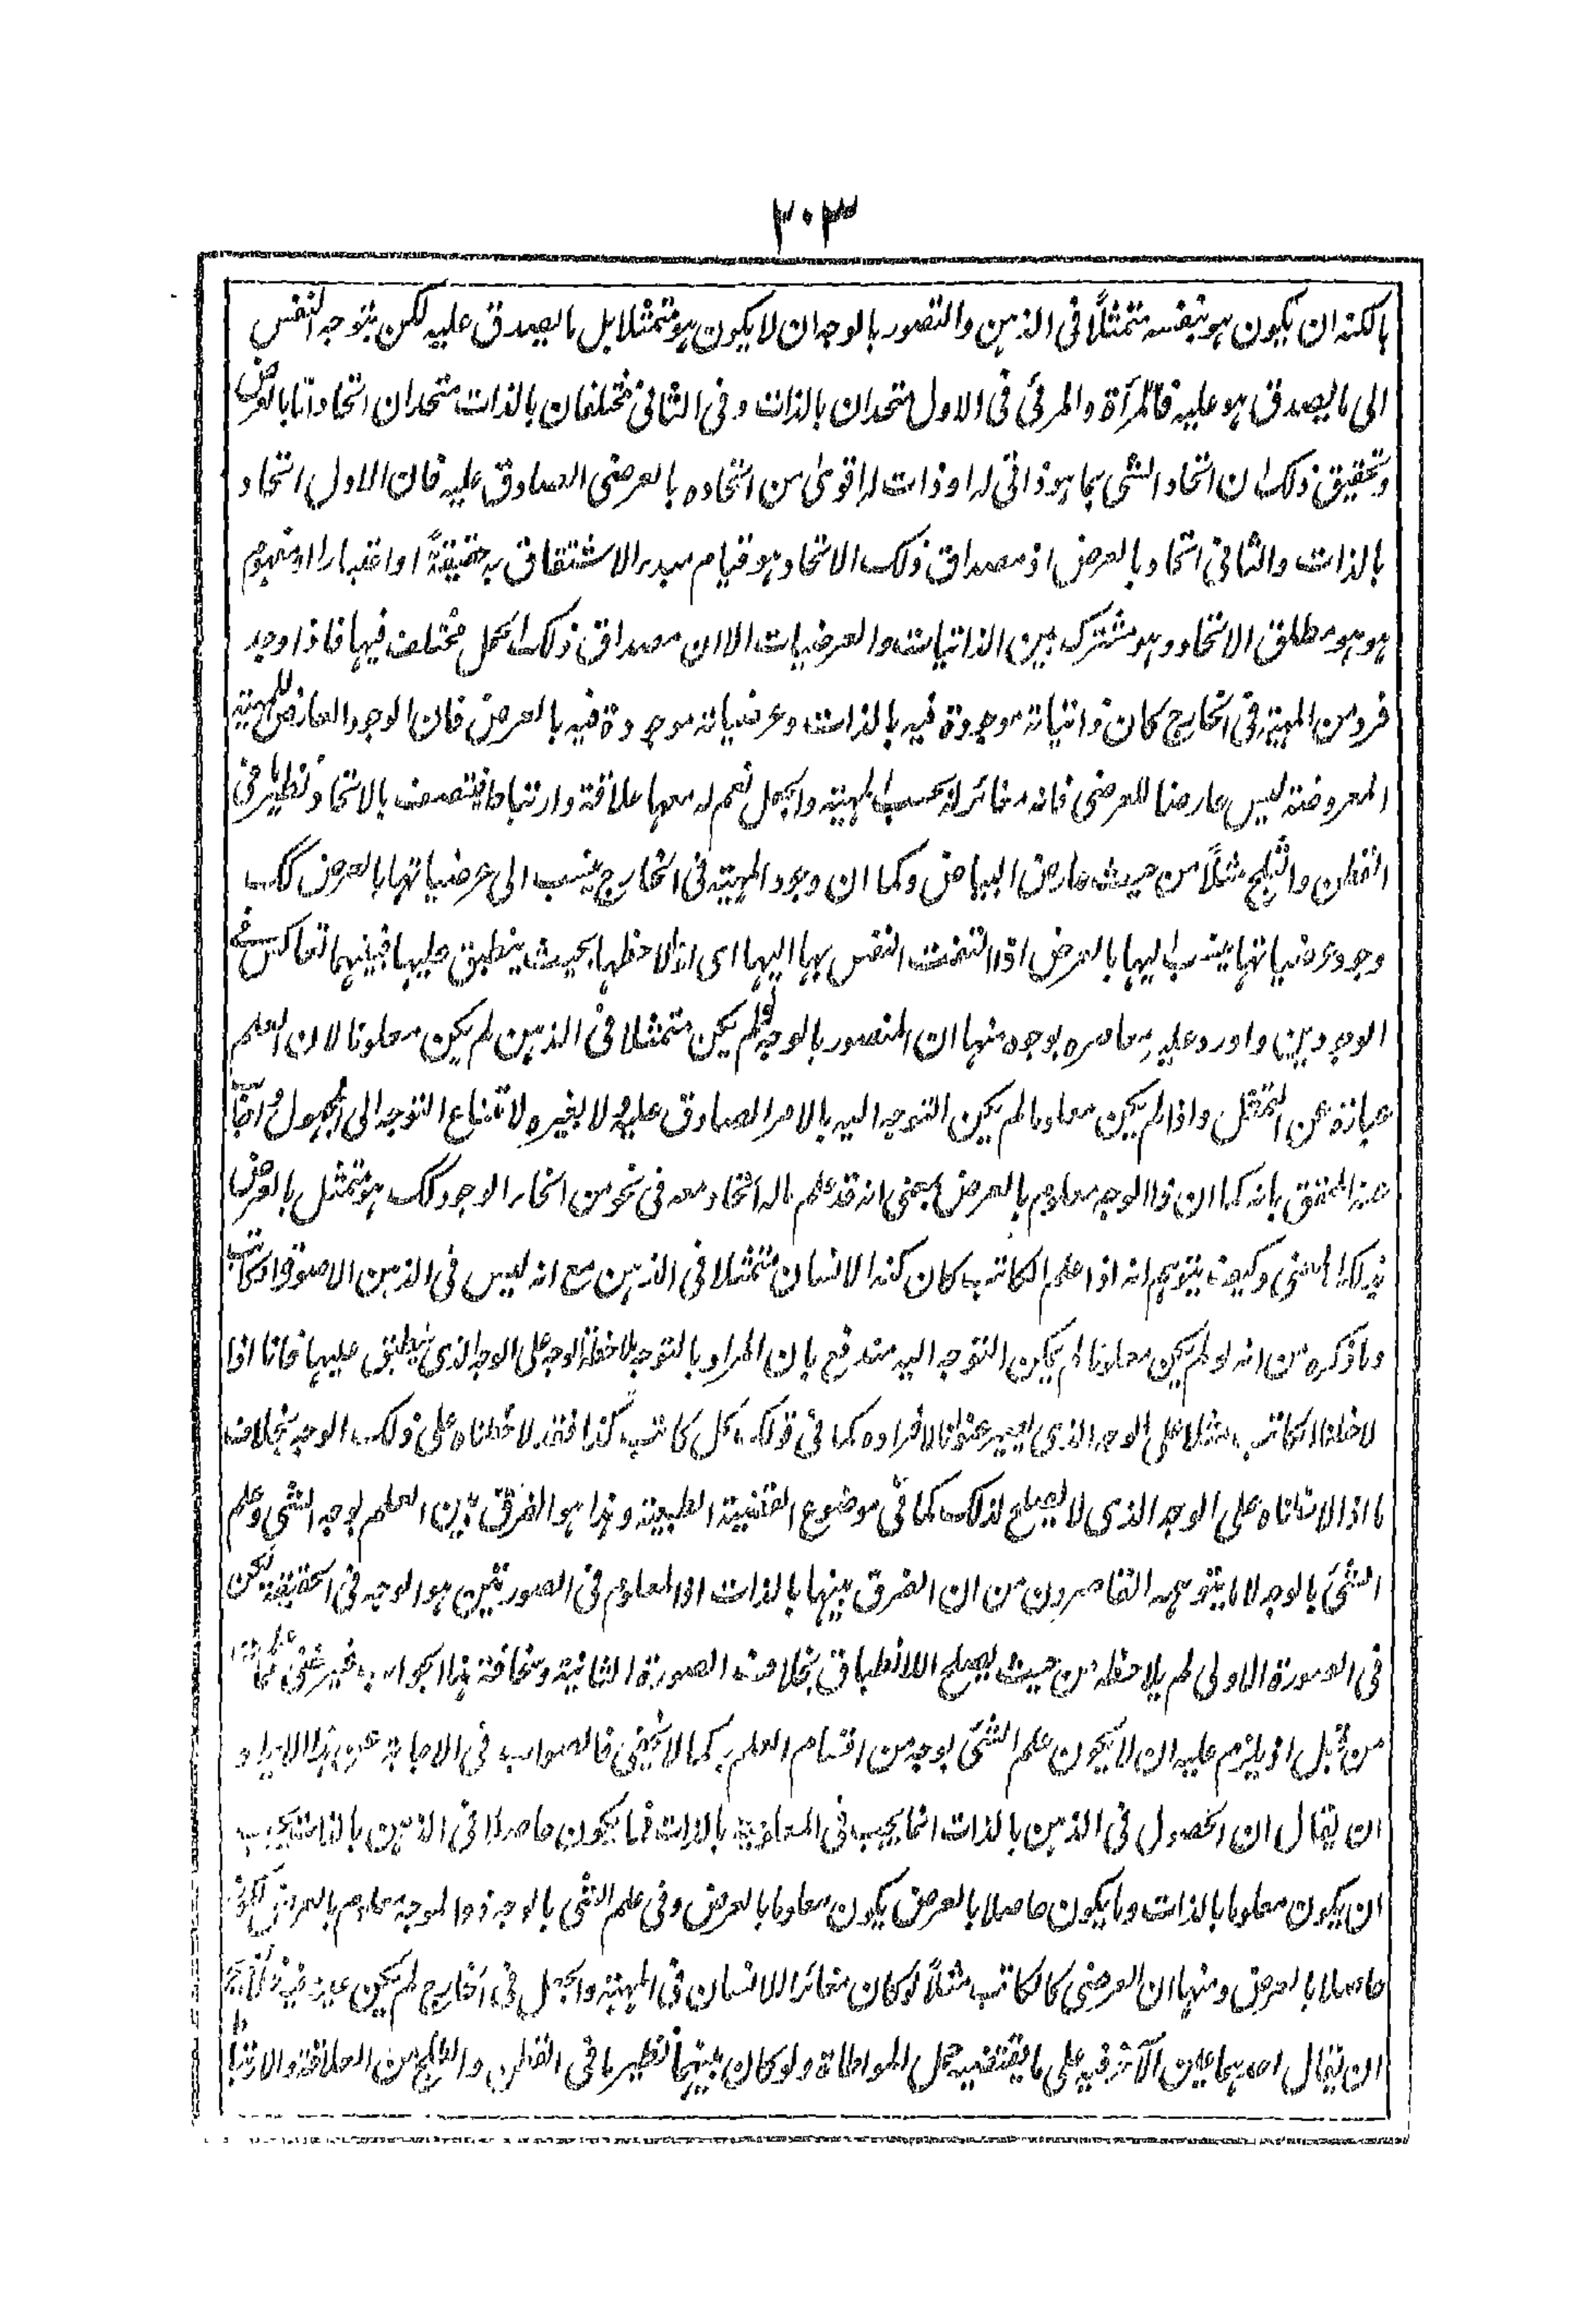 ٣٠٣
بالكنه ان يكون هو بنفسه متمثلاً فى الذهن والتصور بالوجه ان لا يكون هو متمثلا بل ما يصدق عليه لكن يتوجه النفس
الى ما يصدق هو عليه فالمرآة والمرئى فى الاول متحدان بالذات وفى الثانى مختلفان بالذات متحدان اتحادا بالعرض
وتحقيق ذلك ان اتحاد الشى بما هو ذاتى له او ذات له اقوى من اتحاده بالعرضى الصادق عليه فان الاول اتحاد
بالذات والثانى اتحاد بالعرض اذ مصداق ذلك الاتحاد هو قيام مبدء الاشتقاق به حقيقةً او اعتبارا اذ مفهوم
هو هو مطلق الاتحاد وهو مشترك بين الذاتيات والعرضيات الا ان مصداق ذلك الحمل مختلف فيها فاذا وجد
فرد من المهية فى الخارج كان ذاتياته موجودة فيه بالذات وعرضياته موجودة فيه بالعرض فان الوجود العارض للمهية
المعروضة ليس عارضا للعرضى فانه مغائر له بحسب المهية والجعل نعم له معها علاقة وارتباط فيتصف بالاتحاد نظير ما فى
القطن والثلج مثلاً من حيث عارض البياض وكما ان وجود المهية فى الخارج ينسب الى عرضياتها بالعرض كك
وجود عرضياتها ينسب اليها بالعرض اذا التفت النفس بها اليها اى اذا لاحظها بحيث ينطبق عليها فبينهما تعاكس فى
الوجودين واورد عليه معاصره بوجوه منها ان المتصور بالوجه لو لم يكن متمثلا فى الذهن لم يكن معلوما لان العلم
عبارة عن التمثل واذا لم يكن معلوما لم يكن التوجه اليه بالامر الصادق عليه ولا بغيره لامتناع التوجه الى المجهول واجاب
عنه المحقق بانه كما ان ذا الوجه معلوم بالعرض بمعنى انه قد علم ما له اتحاد معه فى نحو من انحاء الوجود كك هو متمثل بالعرض
بذلك المعنى وكيف يتوهم انه اذا علم الكاتب كان كنه الانسان متمثلا فى الذهن مع انه ليس فى الذهن الا صورة الكاتب
وما ذكره من انه لو لم يكن معلوما لم يكن التوجه اليه مندفع بان المراد بالتوجه ملاحظة الوجه على الوجه الذى ينطبق عليها فانا اذا
لاحظنا الكاتب مثلا على الوجه الذى يصير عنوانا لافراده كما فى قولك كل كاتب كذا فقد لاحظناه على ذلك الوجه بخلاف
ما اذا لاحظناه على الوجه الذى لا يصلح لذلك كما فى موضوع القضية الطبيعية وهذا هو الفرق بين العلم بوجه الشى وعلم
الشئ بالوجه لا ما يتوهمه القاصرون من ان الفرق بينها بالذات اذ المعلوم فى الصورتين هو الوجه فى الحقيقة لكن
فى الصورة الاولى لم يلاحظه من حيث يصلح للانطباق بخلاف الصورة الثانية وسخافة هذا الجواب غير خفى
من قبل اذ يلزم عليه ان لا يكون علم الشئ بوجه من اقسام العلم كما لا يخفى فالصواب فى الاجابة عن هذا الايراد
ان يقال ان الحصول فى الذهن بالذات انما يجب فى المعلومية بالذات فما يكون حاصلا فى الذهن بالذات يجب
ان يكون معلوما بالذات وما يكون حاصلا بالعرض يكون معلوما بالعرض وفى علم الشى بالوجه ذو الوجه معلوم بالعرض لكونه
حاصلا بالعرض ومنها ان العرضى كالكاتب مثلاً لو كان مغائرا للانسان فى المهية والجعل فى الخارج لم يكن عينه فيه
ان يقال احدهما عين الآخر فيه على ما يقتضيه حمل المواطاة ولو كان بينهما نظير ما فى القطن والثلج من العلاقة والارتباط